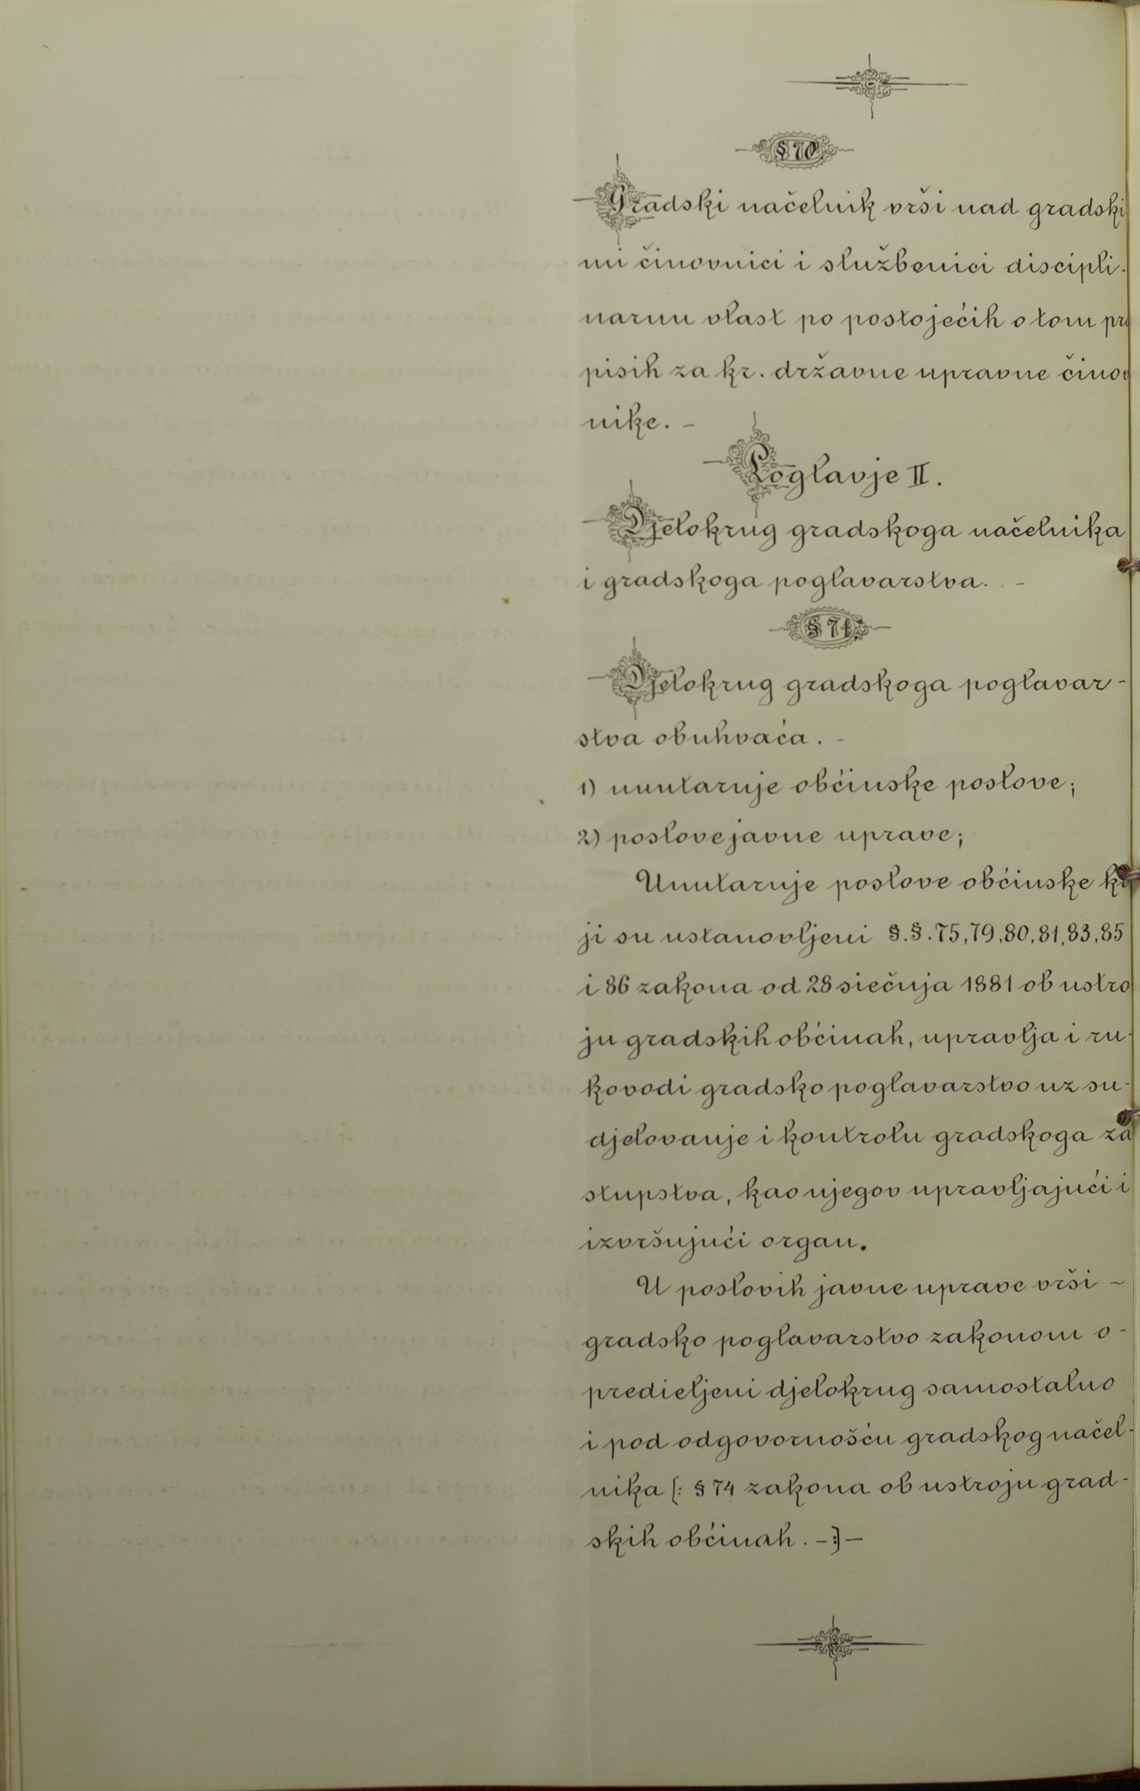 § 70.
Gradski načelnik vrši nad gradski
mi činovnici i službenici discipli-
narnu vlast po postojećih o tom pro
pisih za kr. državne upravne činov
nike. -
Poglavje II.
Djelokrug gradskoga načelnika
i gradskoga poglavarstva. -
§ 71.
Djelokrug gradskoga poglavar-
stva obuhvaća. -
1) unutarnje občinske poslove;
2) poslove javne uprave;
Unutarnje poslove občinske ko
ji su ustanovljeni §.§. 75, 79, 80, 81, 83, 85
i 86 zakona od 28 siečnja 1881 ob ustro
ju gradskih občinah, upravlja i ru-
kovodi gradsko poglavarstvo uz su-
djelovanje i kontrolu gradskoga za
stupstva, kao njegov upravljajući i
izvršujući organ.
U poslovih javne uprave vrši -
gradsko poglavarstvo zakonom o-
predieljeni djelokrug samostalno
i pod odgovornošću gradskog načel-
nika (: § 74 zakona ob ustroju grad-
skih občinah. - :) -